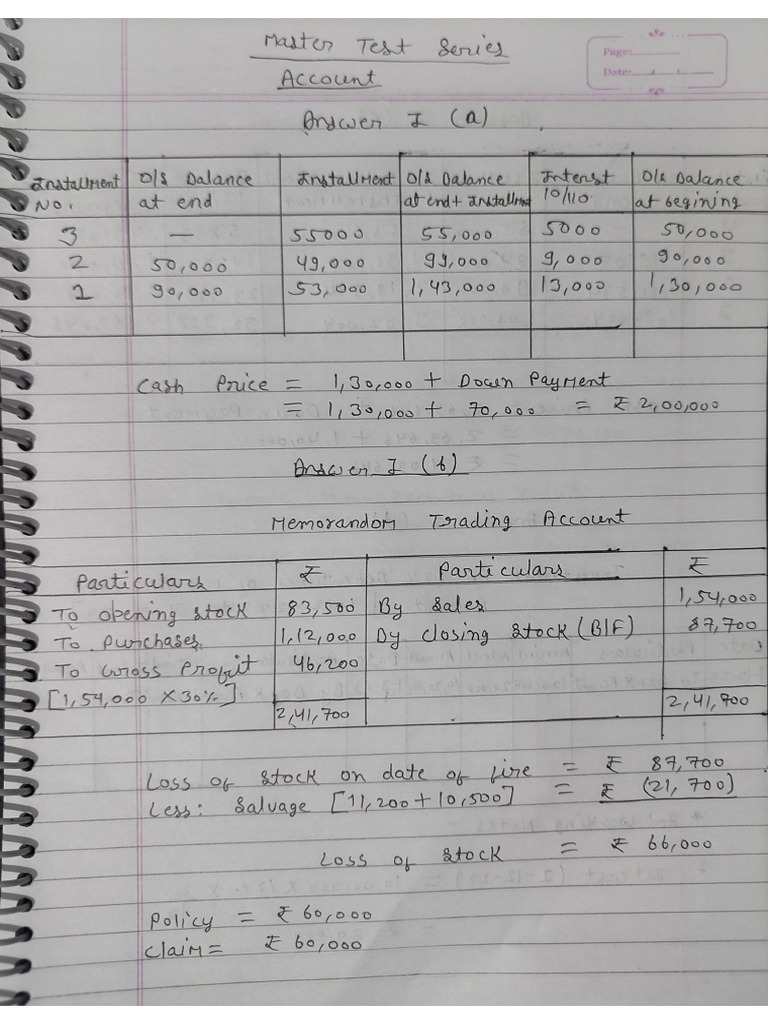 Master Test Series
Page:
Date:
Account
Answer I (a)
Installment No. | O/S Balance at end | Installment | O/S Balance at end + Installment | Interest 10/110 | O/S Balance at begining
3 | — | 55000 | 55,000 | 5000 | 50,000
2 | 50,000 | 49,000 | 99,000 | 9,000 | 90,000
1 | 90,000 | 53,000 | 1,43,000 | 13,000 | 1,30,000
Cash Price = 1,30,000 + Down Payment
= 1,30,000 + 70,000 = ₹ 2,00,000
Answer I (b)
Memorandom Trading Account
Particulars | ₹ | Particulars | ₹
To opening stock | 83,500 | By Sales | 1,54,000
To Purchases | 1,12,000 | By closing Stock (B/F) | 87,700
To Gross Profit | 46,200
[1,54,000 X 30%]
2,41,700 | 2,41,700
Loss of stock on date of fire = ₹ 87,700
Less: Salvage [11,200 + 10,500] = ₹ (21,700)
Loss of Stock = ₹ 66,000
Policy = ₹ 60,000
Claim = ₹ 60,000